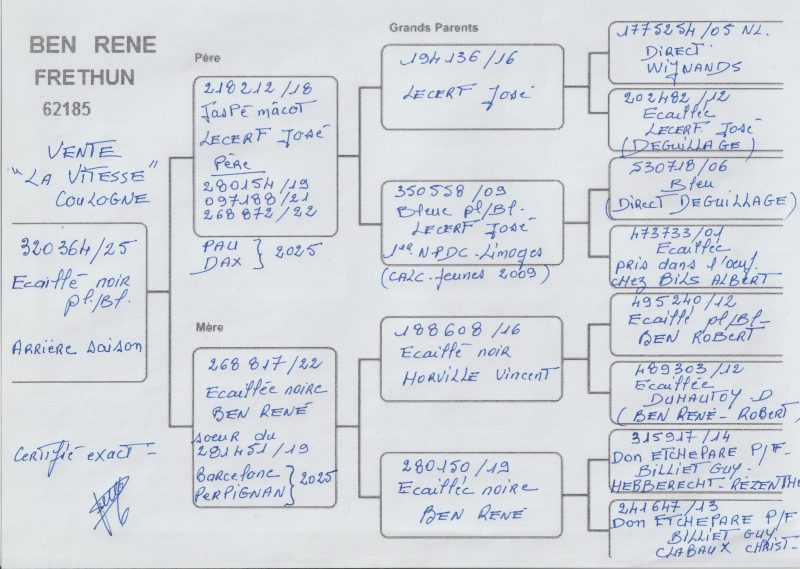 BEN RENE
FRETHUN
62185
VENTE
"LA VITESSE"
COULOGNE
320364/25
Ecaillé noir
pl/Bl.
ARRIÈRE SAISON
CERTIFIÉ EXACT =
Père
218212/18
Jaspé mâcot
LECERF José
PÈRE
280154/19
097188/21
268872/22
PAU
DAX } 2025
Mère
268 817/22
Ecaillée noire
BEN RENÉ
soeur du
281451/19
Barcelone
PERPIGNAN } 2025
Grands Parents
194136/16
LECERF José
350558/09
Bleue pl/Bl.
LECERF José
1er N.PDC-Limoges
(CALC-Jeunes 2009)
188608/16
Ecaillé noir
HORVILLE Vincent
280150/19
Ecaillée noire
BEN RENÉ
1775254/05 NL.
DIRECT
WIJNANDS
202482/12
Ecaillée
LECERF José
(DEGUILLAGE)
530718/06
Bleu
(DIRECT DEGUILLAGE)
473733/01
Ecaillée
pris dans l'oeuf
chez BILS ALBERT
495240/12
Ecaillé pl/Bl-
BEN ROBERT
489303/12
Ecaillée
DUHAUTOY D
(BEN RENÉ-ROBERT)
315917/14
Don ETCHEPARE P/F-
BILLIET GUY-
HEBBERECHT-REZENTHE
241647/13
Don ETCHEPARE P/F
BILLIET GUY
CLABAUX CHRIST-